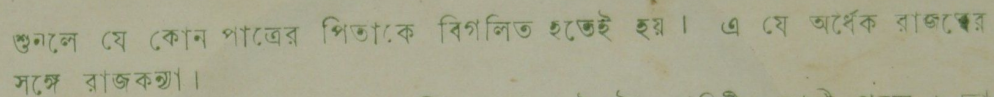 শুনলে যে কোন পাত্রের পিতাকে বিগলিত হতেই হয়। এ যে অর্ধেক রাজত্বের
সঙ্গে রাজকন্যা।